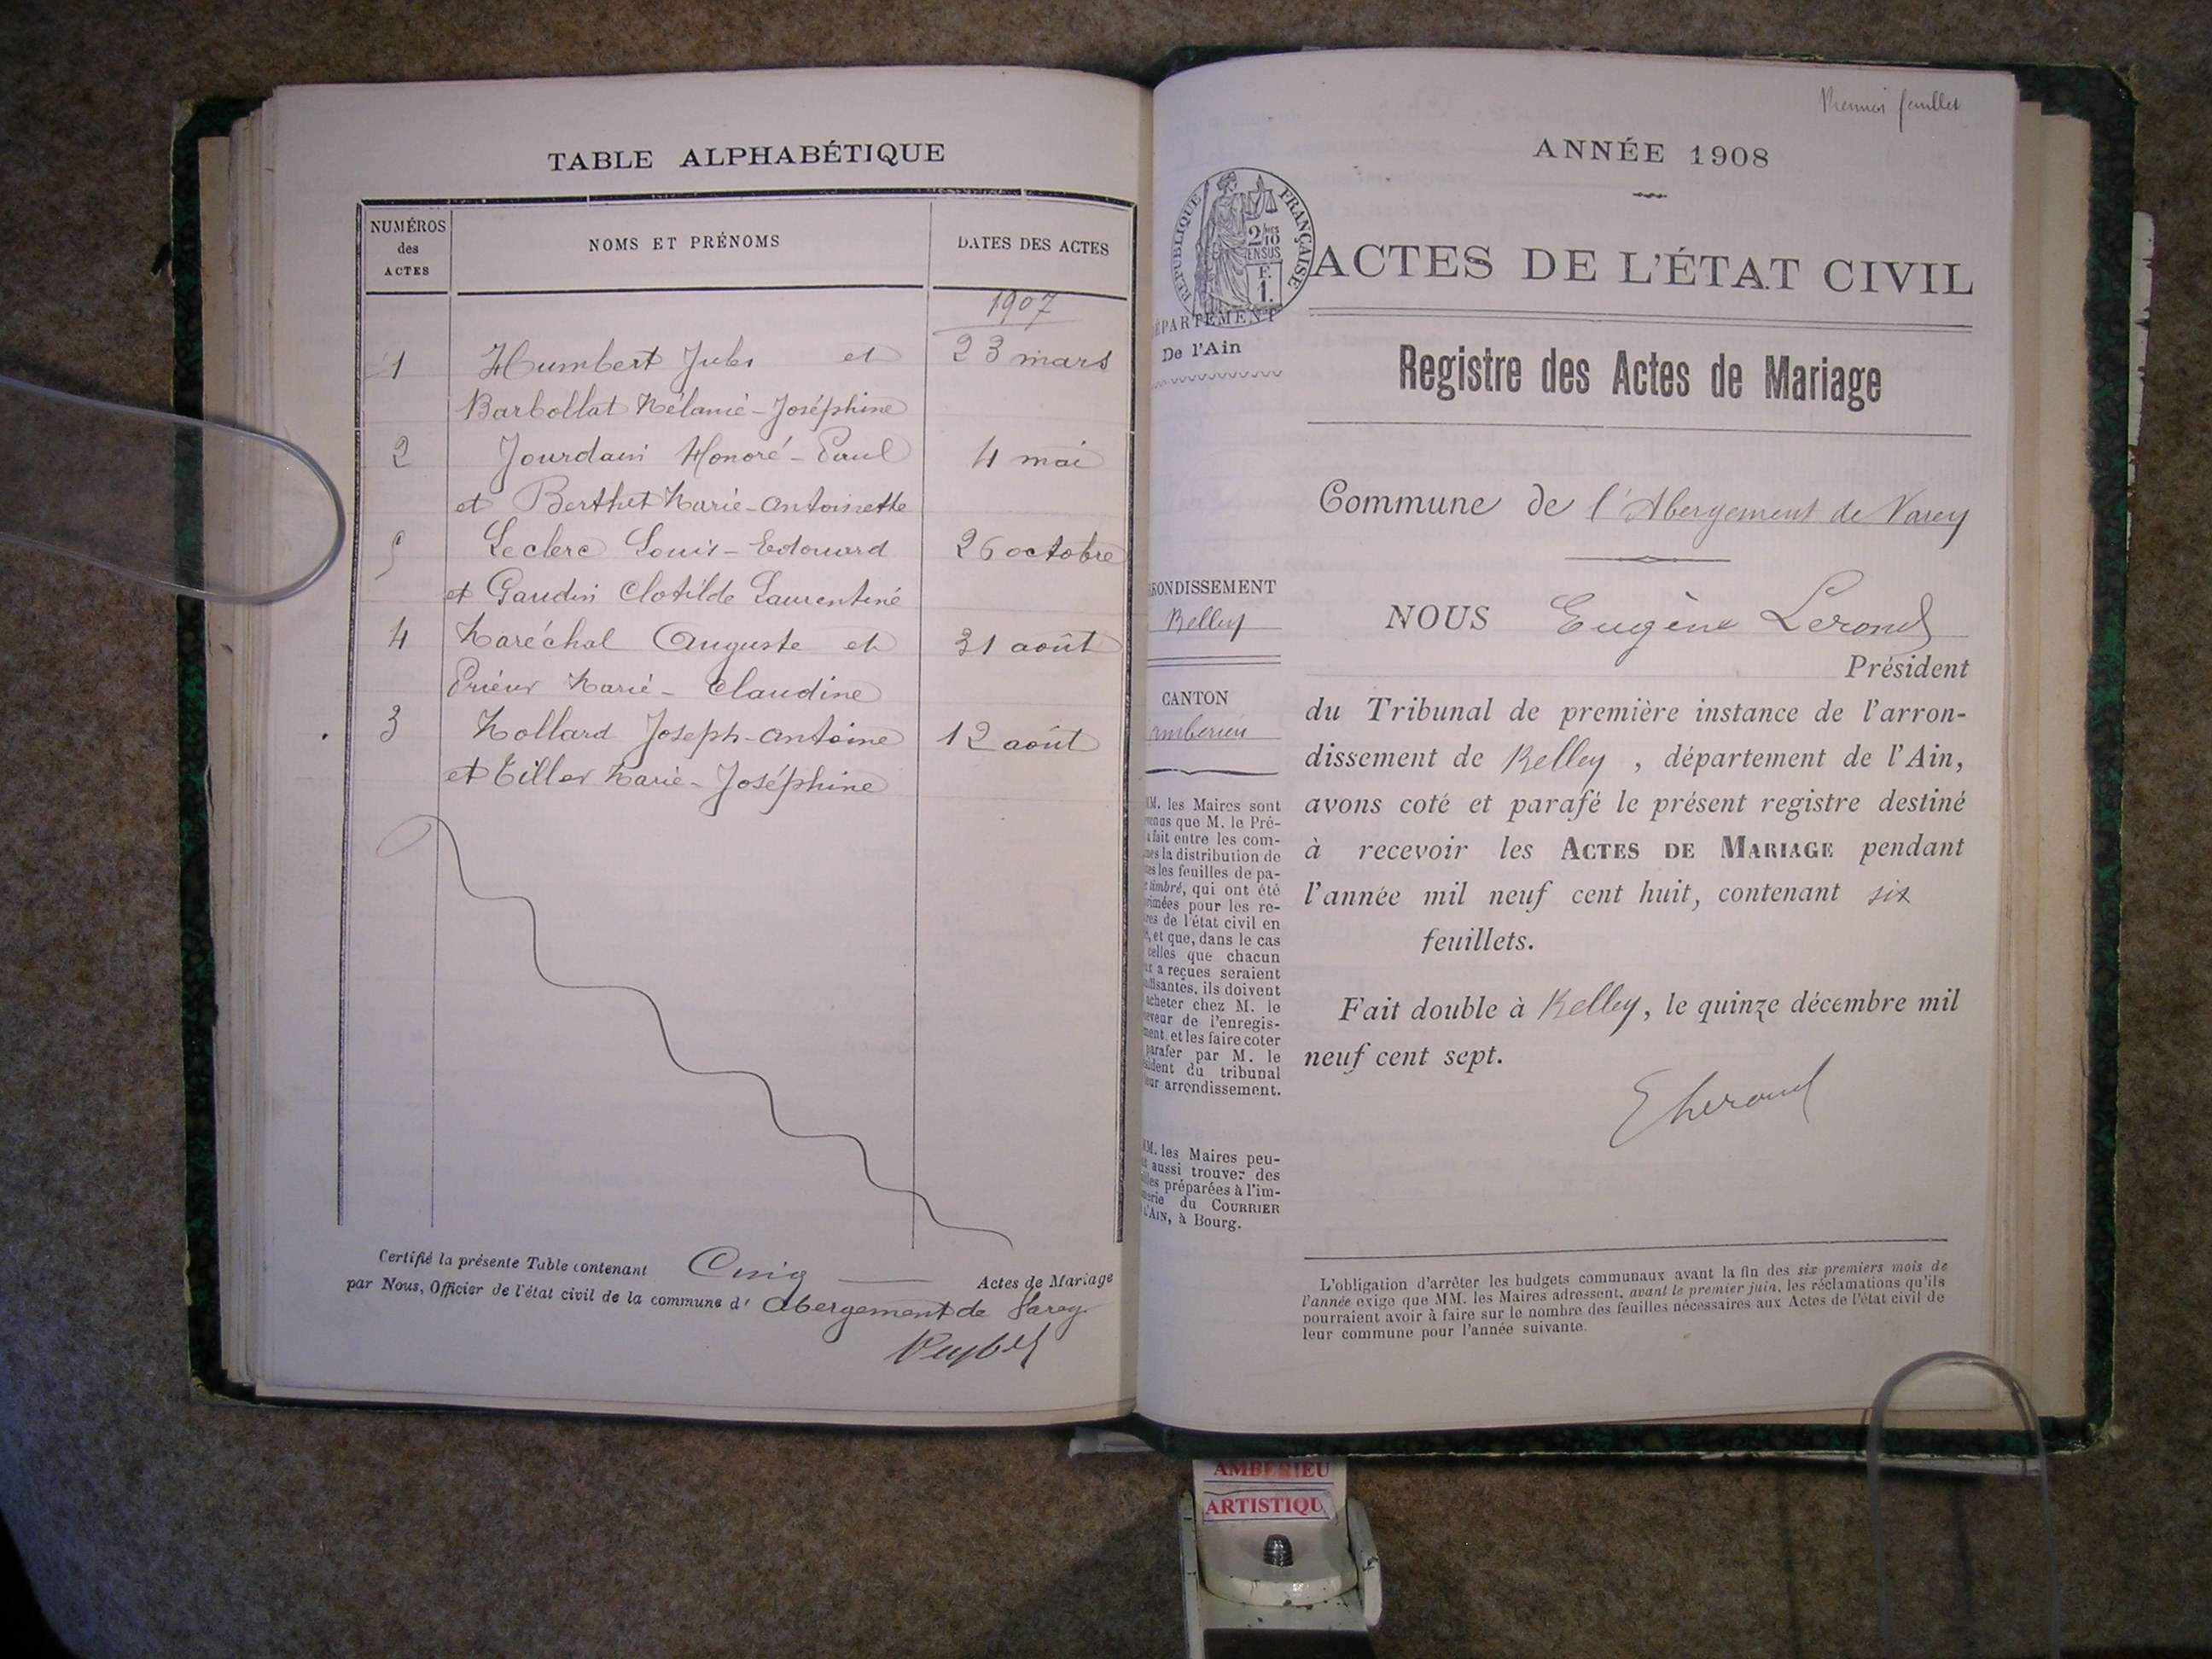 TABLE ALPHABÉTIQUE
NUMÉROS
des
ACTES
NOMS ET PRÉNOMS
DATES DES ACTES
1907
1 Humbert Jules et 23 mars
Barbollat Mélanie-Joséphine
2 Jourdain Honoré-Paul 4 mai
et Berthet Marie-Antoinette
5 Leclerc Louis-Edouard 26 octobre
et Gaudin Clotilde Laurentine
4 Maréchal Auguste et 31 août
Prieur Marie-Claudine
3 Mollard Joseph-Antoine 12 août
et Tiller Marie-Joséphine
Certifié la présente Table contenant Cinq Actes de Mariage
par Nous, Officier de l'état civil de la commune d' Abergement de Varey
Premier feuillet
ANNÉE 1908
RÉPUBLIQUE FRANÇAISE
2/10
EN SUS
F.
1.
ÉPARTEMENT
De l'Ain
ACTES DE L'ÉTAT CIVIL
Registre des Actes de Mariage
Commune de l'Abergement de Varey
RONDISSEMENT
Belley
CANTON
mberieu
NOUS Eugène Lerond
Président
du Tribunal de première instance de l'arron-
dissement de Belley, département de l'Ain,
avons coté et parafé le présent registre destiné
à recevoir les ACTES DE MARIAGE pendant
l'année mil neuf cent huit, contenant six
feuillets.
Fait double à Belley, le quinze décembre mil
neuf cent sept.
E Lerond
M. les Maires sont
enus que M. le Pré-
a fait entre les com-
nes la distribution de
es les feuilles de pa-
timbré, qui ont été
rimées pour les re-
res de l'état civil en
, et que, dans le cas
celles que chacun
r a reçues seraient
ffisantes, ils doivent
acheter chez M. le
eveur de l'enregis-
ment, et les faire coter
parafer par M. le
sident du tribunal
eur arrondissement.
MM. les Maires peu-
aussi trouver des
lles préparées à l'im-
merie du COURRIER
L'AIN, à Bourg.
L'obligation d'arrêter les budgets communaux avant la fin des six premiers mois de
l'année exige que MM. les Maires adressent, avant le premier juin, les réclamations qu'ils
pourraient avoir à faire sur le nombre des feuilles nécessaires aux Actes de l'état civil de
leur commune pour l'année suivante.
AMBERIEU
ARTISTIQU